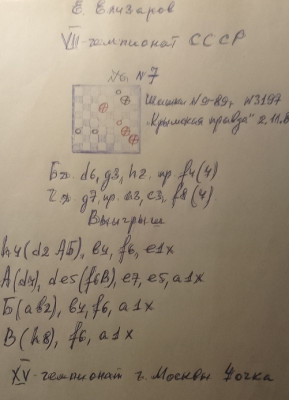 Е. Елизаров
VII-чемпионат СССР
№7
Шашки №9-89г, №3197
"Крымская правда" 2.11.8
Бл. d6, g3, h2. пр. f4 (4)
Ч. g7, пр. a3, c3, f8 (4)
Выигрыш
h4 (d2 АБ), b4, f6, e1x
А (d4), de5 (f6В), e7, e5, a1x
Б (ab2), b4, f6, a1x
В (h8), f6, a1x
XV-чемпионат г. Москвы очка